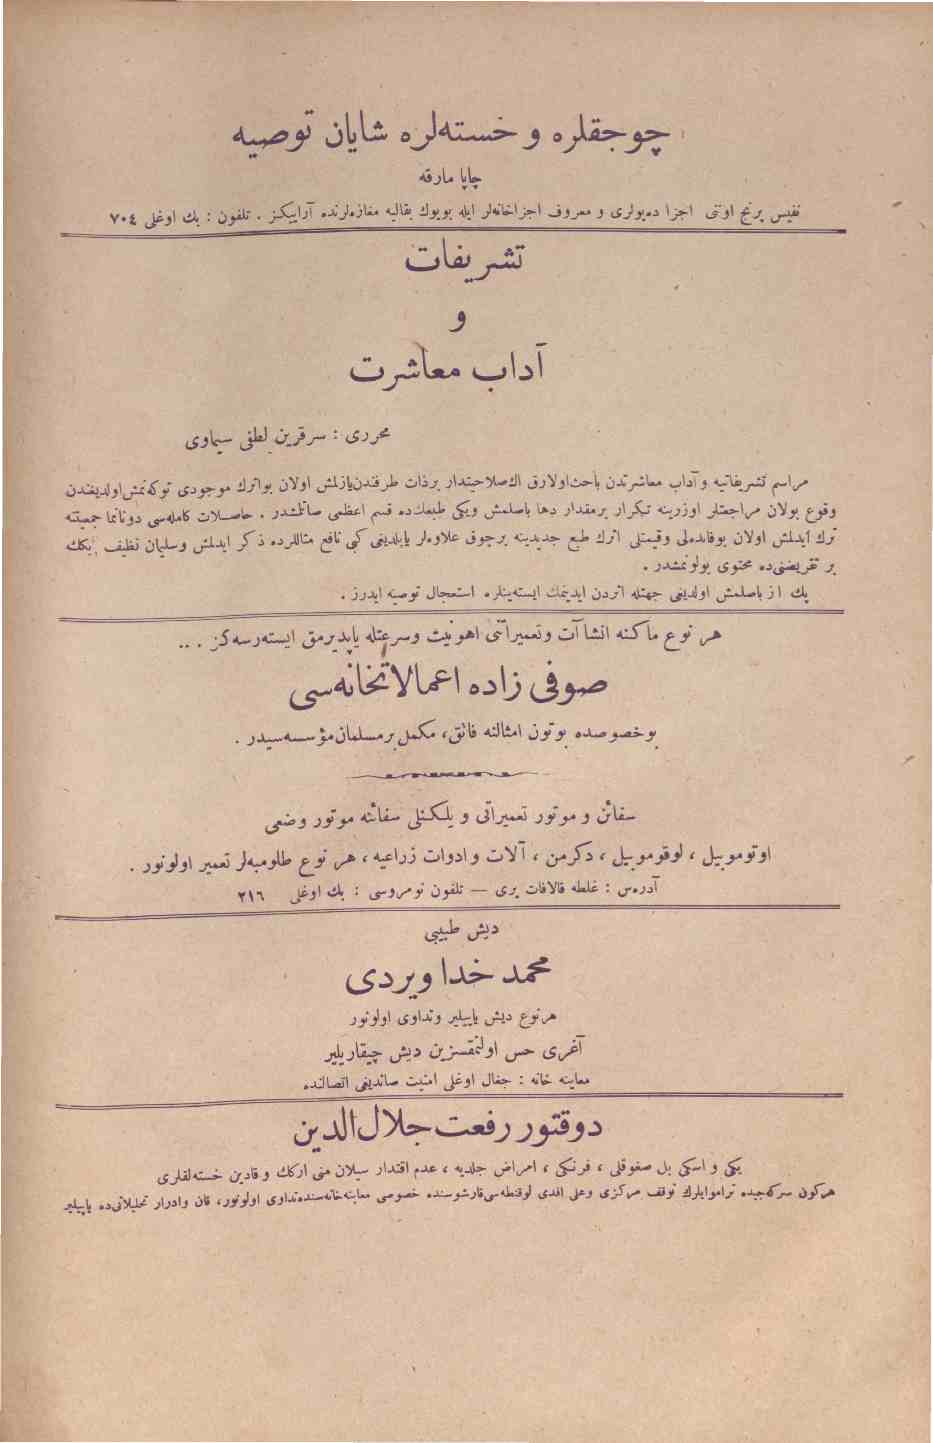 چوجقلره و خسته‌لره شایان توصیه
چاپا مارقه
نفیس پرنج اونی اجزا ده‌پولری و معروف اجزاخانه‌لر ایله بویوك بقالیه مغازه‌لرنده آراییكز . تلفون : بك اوغلی ٧٠٤
تشریفات
و
آداب معاشرت
محرری : سرقرین لطفی سیماوی
مراسم تشریفاتیه و آداب معاشرتدن باحث اولارق اك صلاحیتدار برذات طرفندن یازلمش اولان بواثرك موجودی توكه‌نمش اولدیغندن
وقوع بولان مراجعتلر اوزرینه تكرار برمقدار دها باصلمش ویكی طبعك‌ده قسم اعظمی صاتلشدر . حاصلات كامله‌سی دوناما جمعیتنه
ترك ایدلمش اولان بوفائده‌لی وقیمتلی اثرك طبع جدیدینه برچوق علاوه‌لر یاپلدیغی كبی نافع مثاللرده ذكر ایدلمش وسلیمان نظیف بكك
بر تقریضنی‌ده محتوی بولونمشدر .
پك از باصلمش اولدیغی جهتله اثردن ایدینمك ایسته‌ینلره استعجال توصیه ایدرز .
هر نوع ماكنه انشاآت وتعمیراتنی اهونیت وسرعتله یاپدیرمق ایسته‌رسه‌كز . ..
صوفی زاده اعمالاتخانه‌سی
بوخصوصده بوتون امثالنه فائق، مكمل برمسلمان مؤسسه‌سیدر .
سفائن و موتور تعمیراتی و یلكنلی سفائنه موتور وضعی
اوتوموبیل ، لوقوموبیل ، دكرمن ، آلات وادوات زراعیه ، هر نوع طلومبه‌لر تعمیر اولونور .
آدره‌س : غلطه قالافات یری — تلفون نومروسی : بك اوغلی ٢١٦
دیش طبیبی
محمد خدا ویردی
هرنوع دیش یاپیلیر وتداوی اولونور
آغری حس اولنمقسزین دیش چیقاریلیر
معاینه خانه : جغال اوغلی امنیت صاندیغی اتصالنده
دوقتور رفعت جلال‌الدین
یكی و اسكی بل صغوقلی ، فرنكی ، امراض جلدیه ، عدم اقتدار سیلان منی اركك وقادین خسته‌لقلری
هركون سركه‌جیده تراموایلرك توقف مركزی وعلی افندی لوقنطه‌سی قارشوسنده خصوصی معاینه‌خانه‌سنده تداوی اولونور، قان وادرار تحلیلاتی‌ده یاپیلیر